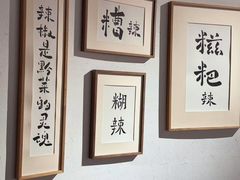 辣椒是黔菜的灵魂
糟辣
糊辣
糍粑
辣